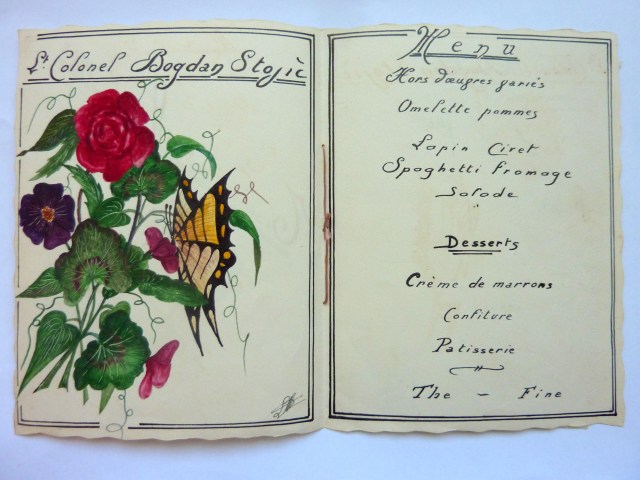 Lt Colonel Bogdan Stojić
Menu
Hors d'œugres gariés
Omelette pommes
Lapin Ciret
Spaghetti fromage
Salade
"
Desserts
Crème de marrons
Confiture
Patisserie
The - Fine